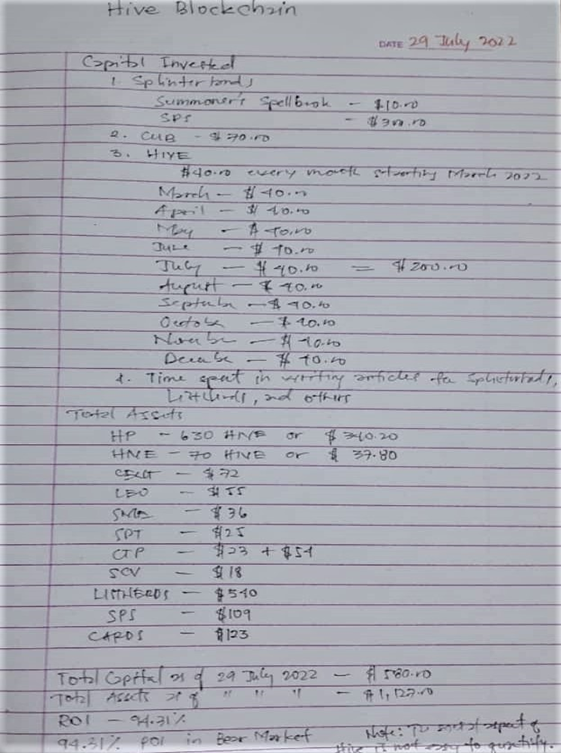 Hive Blockchain
DATE 29 July 2022
Capital Invested
1. Splinterlands
Summoner's Spellbook - $10.00
SPS - $300.00
2. CUB - $70.00
3. HIVE
$40.00 every month starting March 2022
March - $40.00
April - $40.00
May - $40.00
June - $40.00
July - $40.00 = $200.00
August - $40.00
September - $40.00
October - $40.00
November - $40.00
December - $40.00
4. Time spent in writing articles for Splinterlands,
Listnerds, and others
Total Assets
HP - 630 HIVE or $340.20
HIVE - 70 HIVE or $37.80
CENT - $72
LEO - $55
- $36
SPT - $25
CTP - $23 + $54
SCV - $18
LISTNERDS - $540
SPS - $109
CARDS - $123
Total Capital as of 29 July 2022 - $580.00
Total Assets as of " " " - $1,127.00
ROI - 94.31%
94.31% ROI in Bear Market
Note: The social aspect of
Hive is not easy to quantify.